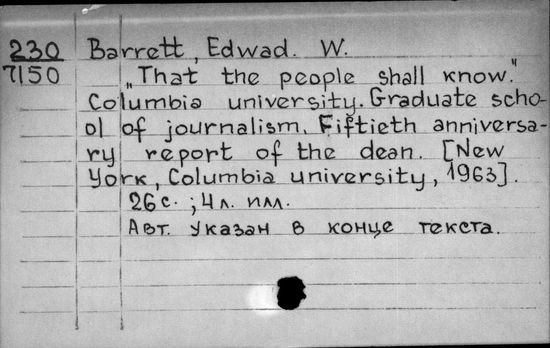 230 Barrett, Edwad. W.
7150 „That the people shall know."
Columbia university. Graduate scho-
ol of journalism. Fiftieth anniversa-
ry report of the dean. [New
York, Columbia university, 1963].
26 с. ; 4 л. илл.
Авт. указан в конце текста.